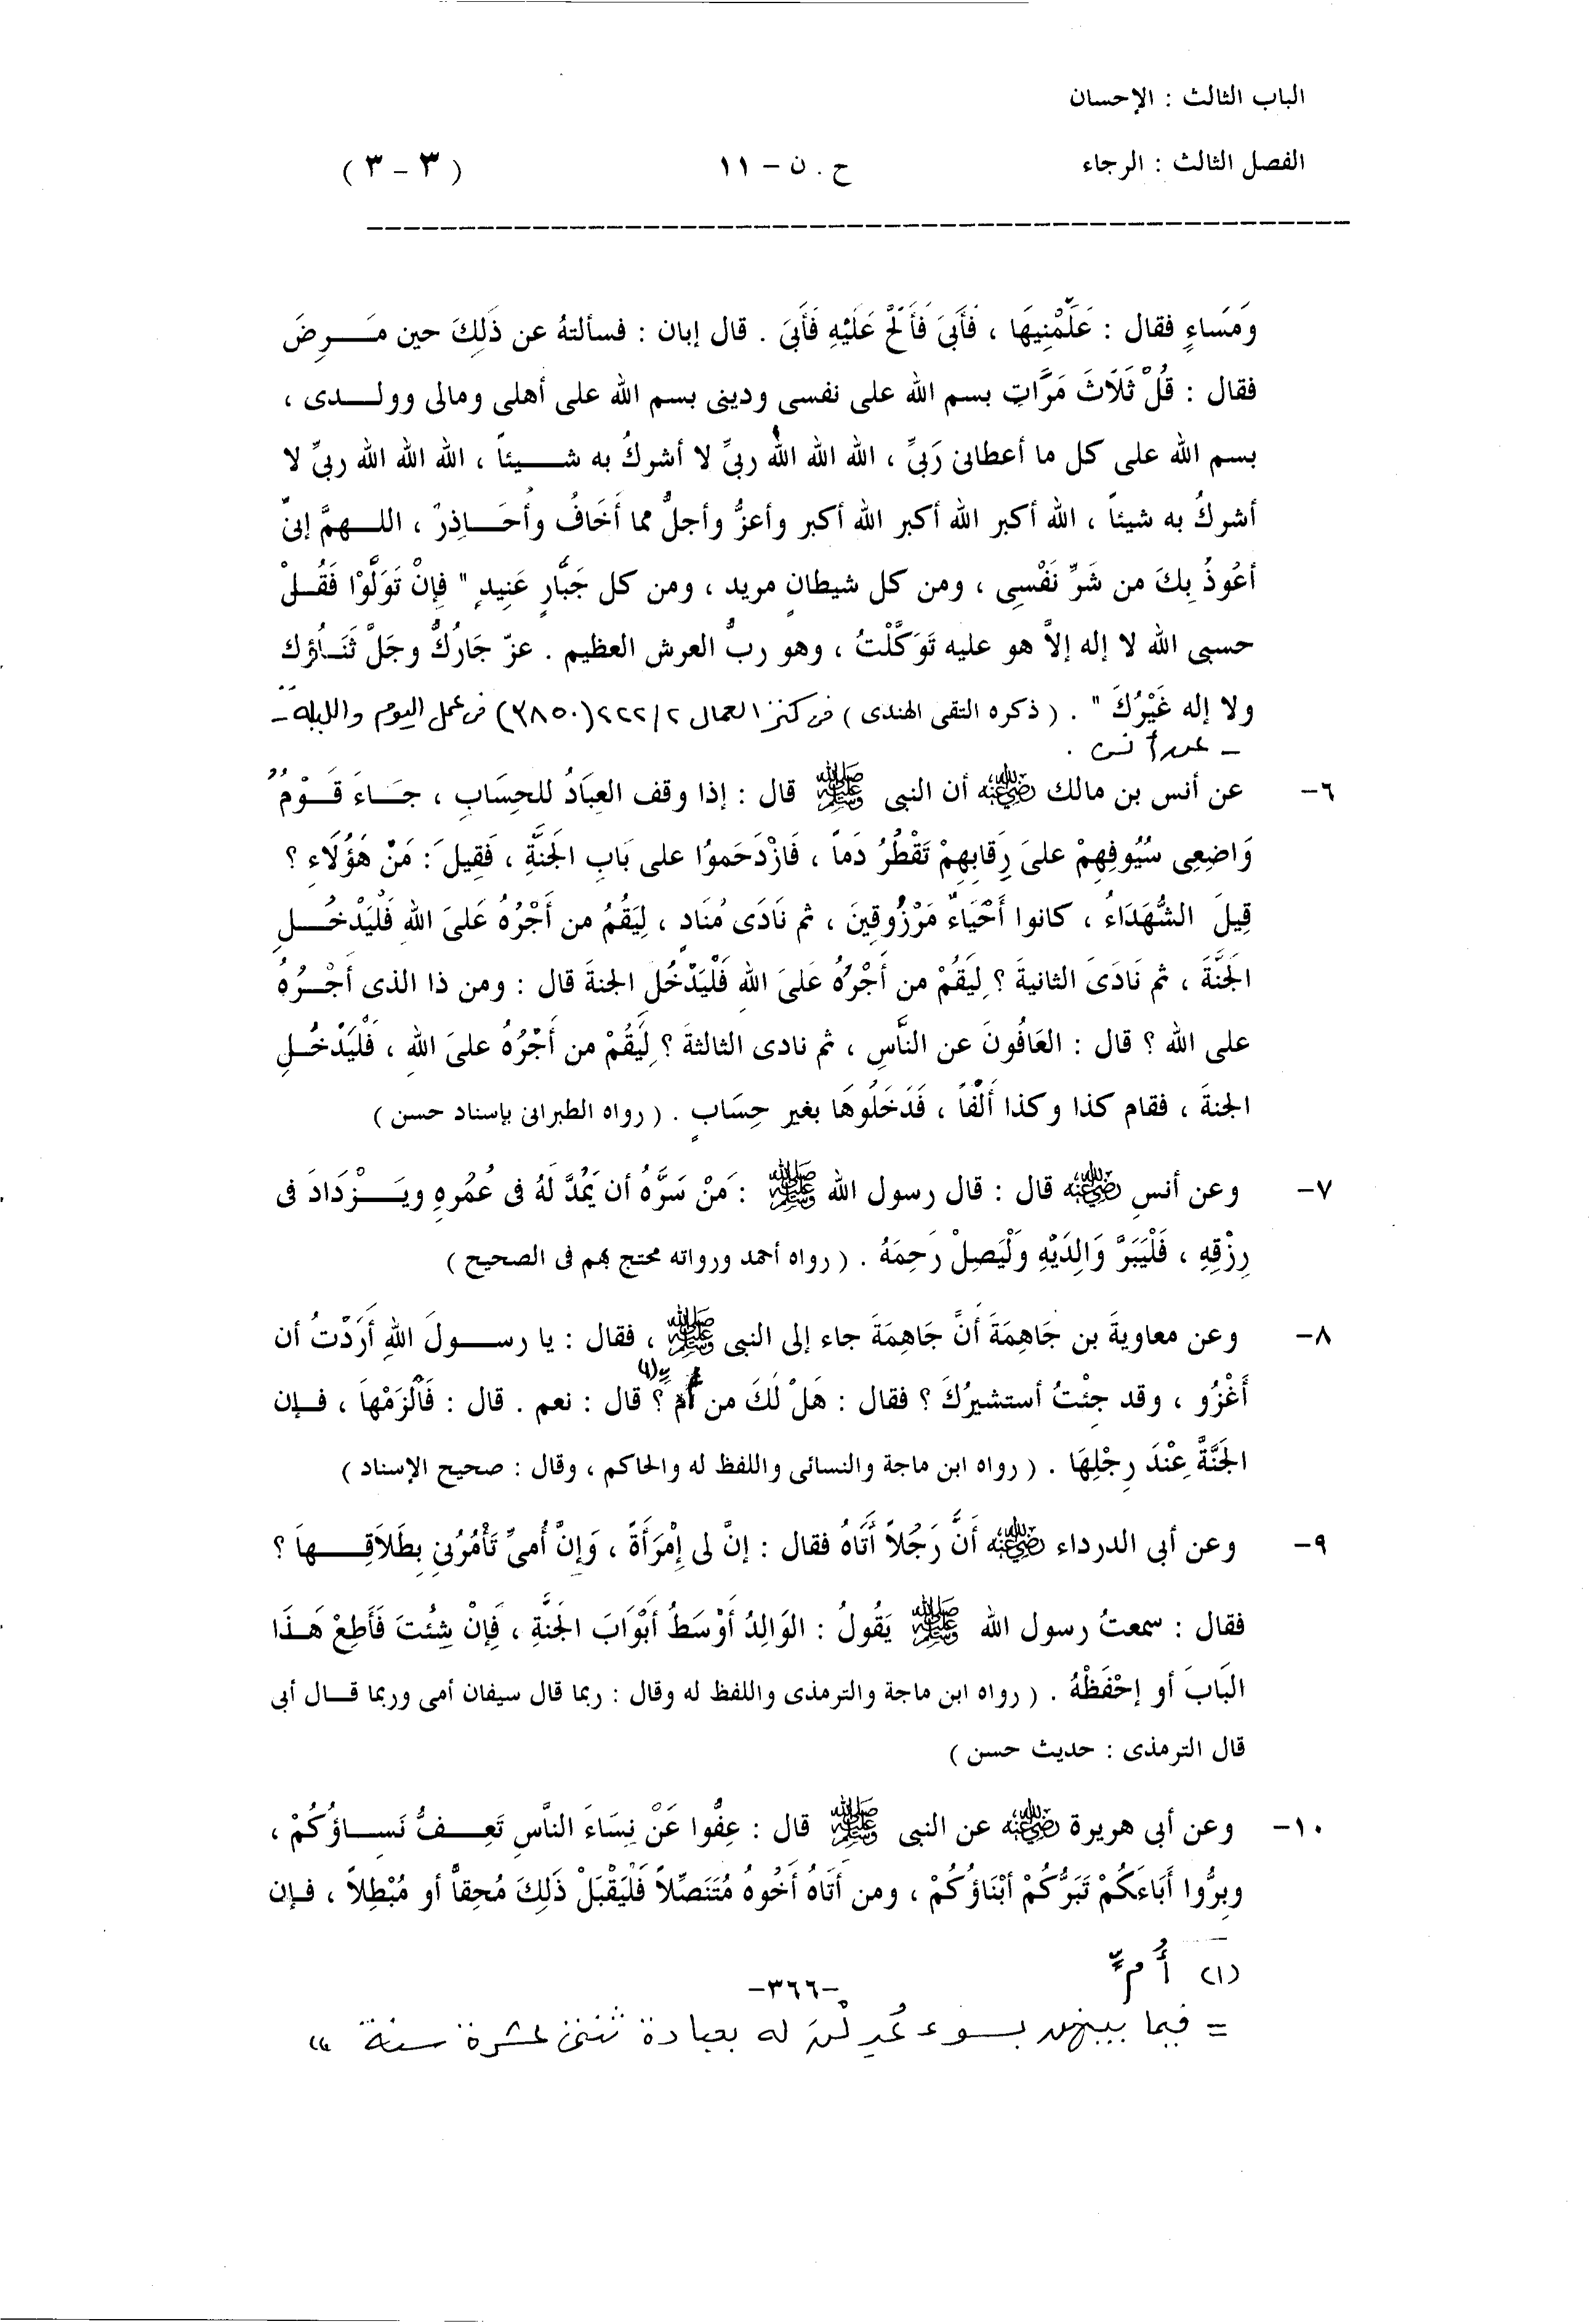 الباب الثالث : الإحسان
الفصل الثالث : الرجاء ح . ن – ١١ ( ٣ – ٣ )
وَمَسَاءٍ فقال : عَلِّمْنِيهَا ، فَأَبَىَ فَأَلَحَّ عَلَيْهِ فَأَبَىَ . قال إبان : فسألتهُ عن ذَلِكَ حين مَرِضَ
فقال : قُلْ ثَلَاثَ مَرَّاتٍ بسم الله على نفسى ودينى بسم الله على أهلى ومالى وولدى ،
بسم الله على كل ما أعطانى رَبىِّ ، الله الله اللهُ ربىِّ لا أشركُ به شيئاً ، الله الله الله ربىِّ لا
أشركُ به شيئاً ، الله أكبر الله أكبر الله أكبر وأعزُّ وأجلُّ مما أَخَافُ وأُحَاذِرُ ، اللهمَّ إنىِّ
أعُوذُ بِكَ من شَرِّ نَفْسِى ، ومن كل شيطانٍ مريد ، ومن كل جَبَّارٍ عَنِيدٍ " فِإنْ تَوَلَّوْا فَقُلْ
حسبى الله لا إله إلاَّ هو عليه تَوَكَّلْتُ ، وهو ربُّ العرش العظيم . عزّ جَارُكَُ وجَلَّ ثَنَاؤُك
ولا إله غَيْرُكَ " . ( ذكره التقى الهندى ) فى كنز العمال ٢/٢٢٢(٣٨٥٠) فى عمل اليوم والليلة –
– عن أنس .
٦– عن أنس بن مالك رضي الله عنه أن النبى ﷺ قال : إذا وقف العِبَادُ للحِسَابِ ، جَاءَ قَوْمٌ
وَاضِعِى سُيُوفِهِمْ علىَ رِقَابِهِمْ تَقْطُرُ دَماً ، فَازْدَحَموُا على بَابِ الجَنَّةِ ، فَقِيلَ : مَنْ هَؤُلَاءِ ؟
قِيلَ الشُّهَدَاءُ ، كانوا أَحْيَاءً مَرْزُوقِينَ ، ثم نَادَى مُنَادٍ ، لِيَقُمْ من أَجْرُهُ عَلىَ اللهِ فَلْيَدْخُلِ
الجَنَّةَ ، ثم نَادَىَ الثانيةَ ؟ لِيَقُمْ من أَجْرُهُ عَلىَ اللهِ فَلْيَدْخُلِ الجنةَ قال : ومن ذا الذى أَجْرُهُ
على الله ؟ قال : العَافُونَ عن النَّاسِ ، ثم نادى الثالثةَ ؟ لِيَقُمْ من أَجْرُهُ علىَ اللهِ ، فَلْيَدْخُلِ
الجنةَ ، فقام كذا وكذا أَلْفاً ، فَدَخَلُوهَا بغير حِسَابٍ . ( رواه الطبرانى بإسناد حسن )
٧– وعن أنسٍ رضي الله عنه قال : قال رسول الله ﷺ : مَنْ سَرَّهُ أن يُمَدَّ لَهُ فى عُمُرِهِ ويَزْدَادَ فى
رِزْقِهِ ، فَلْيَبَرَّ وَالِدَيْهِ وَلْيَصِلْ رَحِمَهُ . ( رواه أحمد ورواته محتج بهم فى الصحيح )
٨– وعن معاويةَ بن جَاهِمَةَ أنَّ جَاهِمَةَ جاء إلى النبى ﷺ ، فقال : يا رسولَ اللهِ أَرَدْتُ أن
أَغْزُو ، وقد جِئْتُ أستشيرُكَ ؟ فقال : هَلْ لَكَ من أم (١) ؟ قال : نعم . قال : فَالْزَمْهاَ ، فإن
الجَنَّةَ عِنْدَ رِجْلِهَا . ( رواه ابن ماجة والنسائى واللفظ له والحاكم ، وقال : صحيح الإسناد )
٩– وعن أبى الدرداء رضي الله عنه أَنَّ رَجُلاً أَتَاهُ فقال : إنَّ لى إِمْرَأَةً ، وَإنَّ أُمىِّ تَأْمُرُنىِ بِطَلَاقِهاَ ؟
فقال : سمعتُ رسول الله ﷺ يَقُولُ : الوَالِدُ أَوْسَطُ أَبْوَابَ الجَنَّةِ ، فَإِنْ شِئْتَ فَأَطِعْ هَذَا
البَابَ أو إحْفَظْهُ . ( رواه ابن ماجة والترمذى واللفظ له وقال : ربما قال سيفان أمى وربما قال أبى
قال الترمذى : حديث حسن )
١٠– وعن أبى هريرة رضي الله عنه عن النبى ﷺ قال : عِفُّوا عَنْ نِسَاءَ النَّاسِ تَعِفُّ نَسِاؤُكُمْ ،
وبِرُّوا أَبَاءَكُمْ تَبَرُّكُمْ أبْنَاؤُكُمْ ، ومن أتَاهُ أَخُوهُ مُتَنَصِّلاً فَلْيَقْبَلْ ذَلِكَ مُحِقاًّ أو مُبْطِلاً ، فإن
(١) أُمٍّ
–٣٦٦–
= فيما بينهن بسوء عُدِلْنَ له بعبادة ثنتى عشرة سنة "